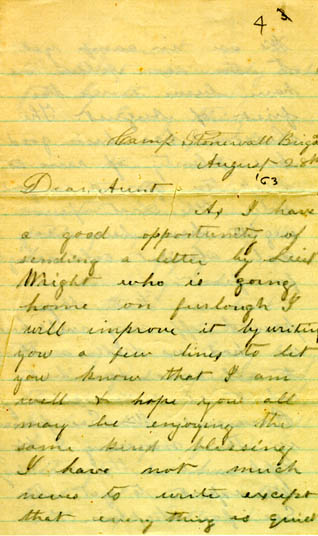 43
Camp Stonewall Briga
August 28th
'63
Dear Aunt
As I have
a good opportunity of
sending a letter by Lieut
Wright who is going
home on furlough I
will improve it by writing
you a few lines to let
you know that I am
well & hope you all
may be enjoying the
same kind blessing
I have not much
news to write except
that every thing is quiet